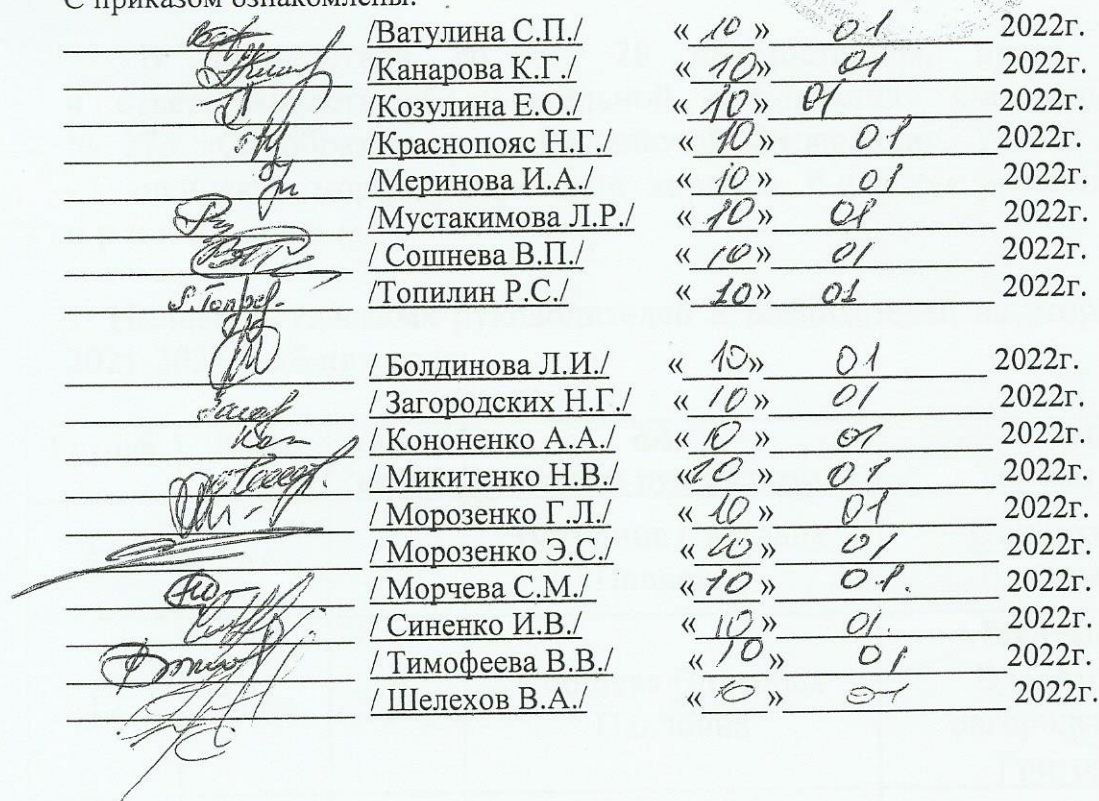 С приказом ознакомлены:
/Ватулина С.П./ «10» 01 2022г.
/Канарова К.Г./ «10» 01 2022г.
/Козулина Е.О./ «10» 01 2022г.
/Краснопояс Н.Г./ «10» 01 2022г.
/Меринова И.А./ «10» 01 2022г.
/Мустакимова Л.Р./ «10» 01 2022г.
/ Сошнева В.П./ «10» 01 2022г.
/Топилин Р.С./ «10» 01 2022г.
/ Болдинова Л.И./ «10» 01 2022г.
/ Загородских Н.Г./ «10» 01 2022г.
/ Кононенко А.А./ «10» 01 2022г.
/ Микитенко Н.В./ «10 01 2022г.
/ Морозенко Г.Л./ «10» 01 2022г.
/ Морозенко Э.С./ «10» 01 2022г.
/ Морчева С.М./ «10» 01. 2022г.
/ Синенко И.В./ «10» 01. 2022г.
/ Тимофеева В.В./ «10» 01 2022г.
/ Шелехов В.А./ «10» 01 2022г.